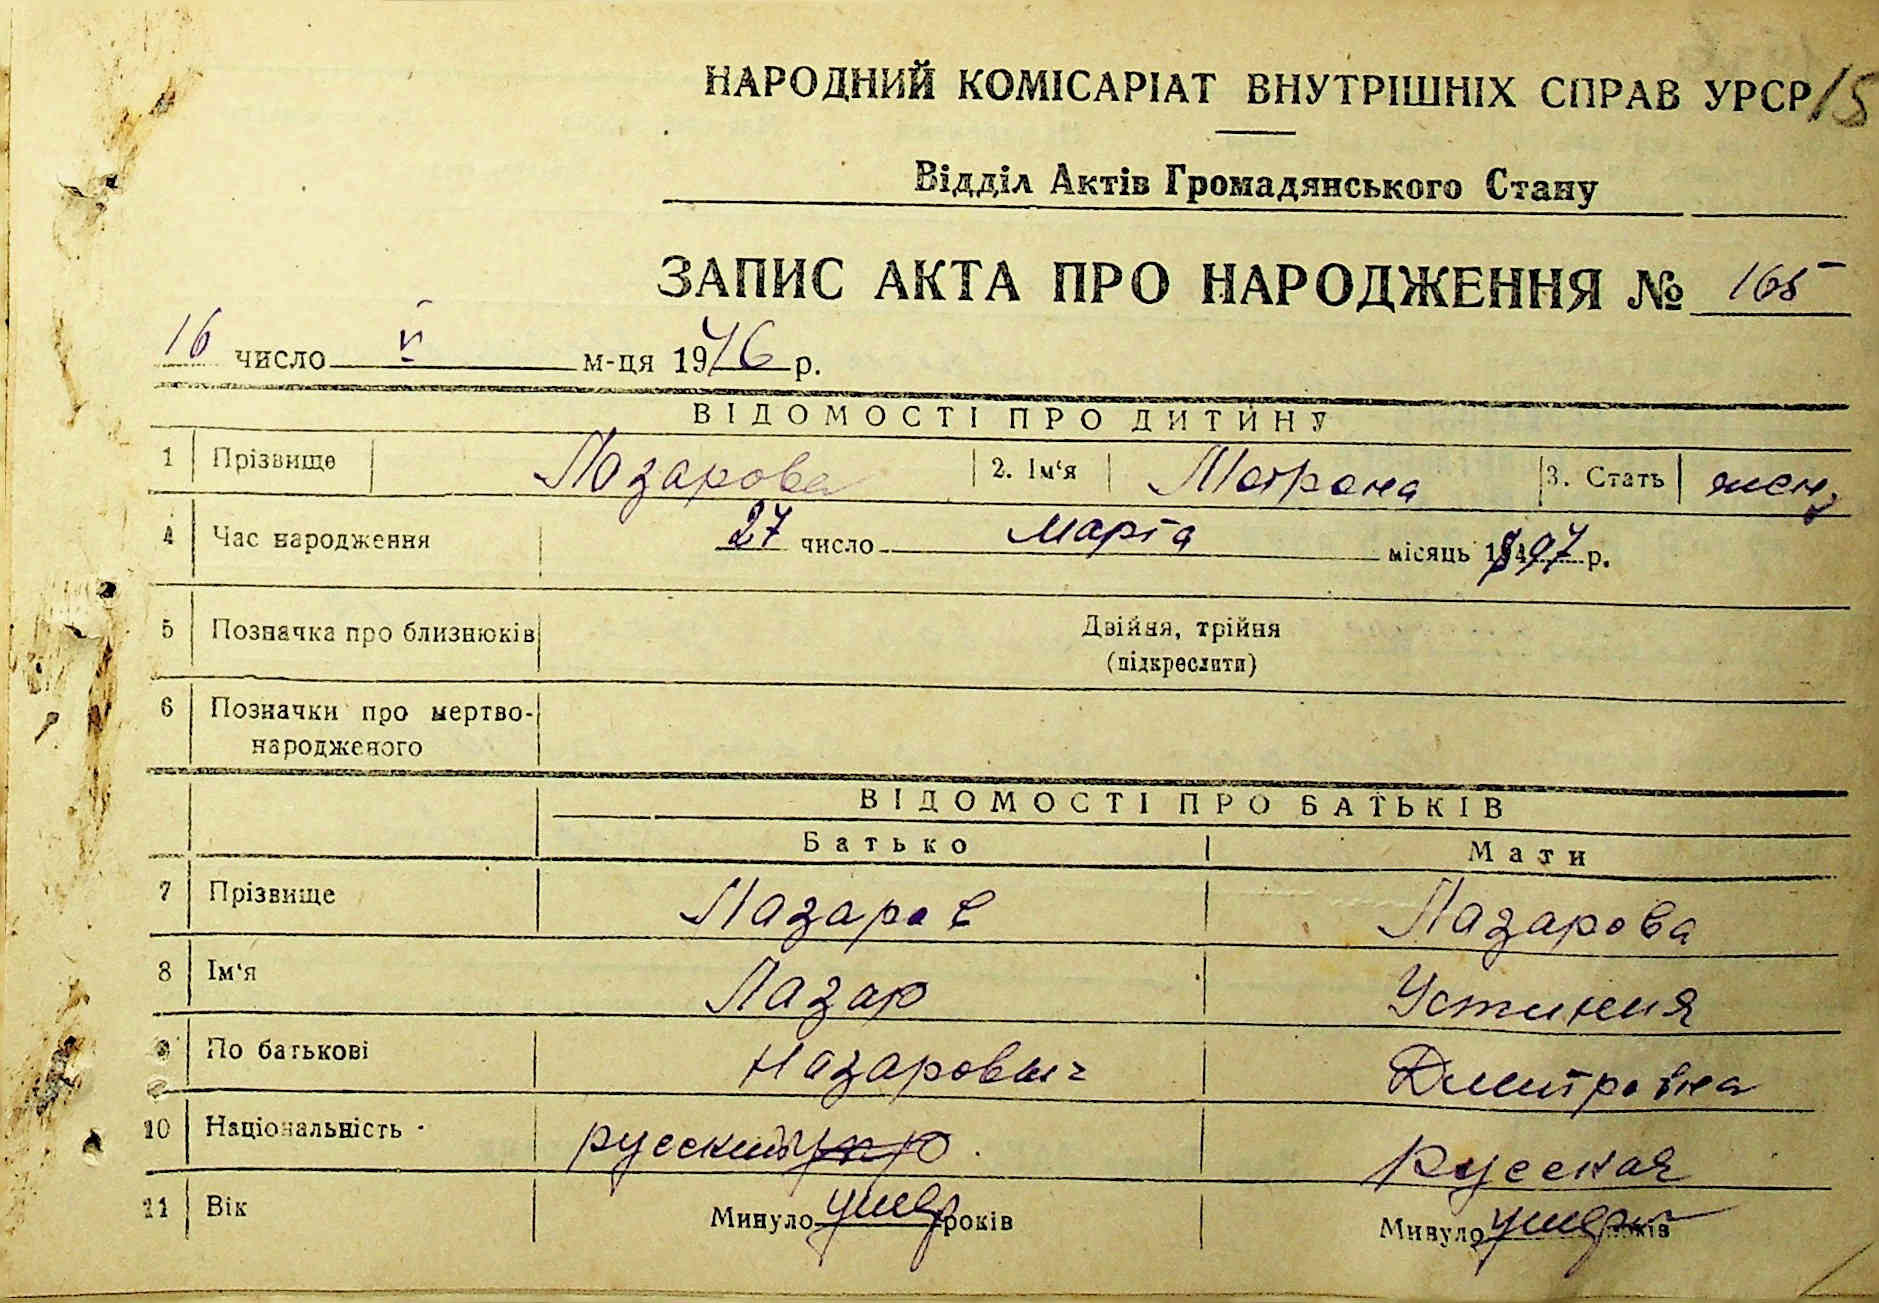 НАРОДНИЙ КОМІСАРІАТ ВНУТРІШНІХ СПРАВ УРСР 15
Відділ Актів Громадянського Стану
ЗАПИС АКТА ПРО НАРОДЖЕННЯ № 165
16 число м-ця 1946 р.
ВІДОМОСТІ ПРО ДИТИНУ
1 Прізвище Лазарова 2. Ім'я Матрона 3. Стать жен.
4 Час народження 27 число марта місяць 1897 р.
5 Позначка про близнюків Двійня, трійня
(підкреслити)
6 Позначки про мертво-
народженого
ВІДОМОСТІ ПРО БАТЬКІВ
Батько Мати
7 Прізвище Лазаров Лазарова
8 Ім'я Лазар Устиния
9 По батькові Назарович Дмитровна
10 Національність русский русская
11 Вік Минуло умер років Минуло умерла років